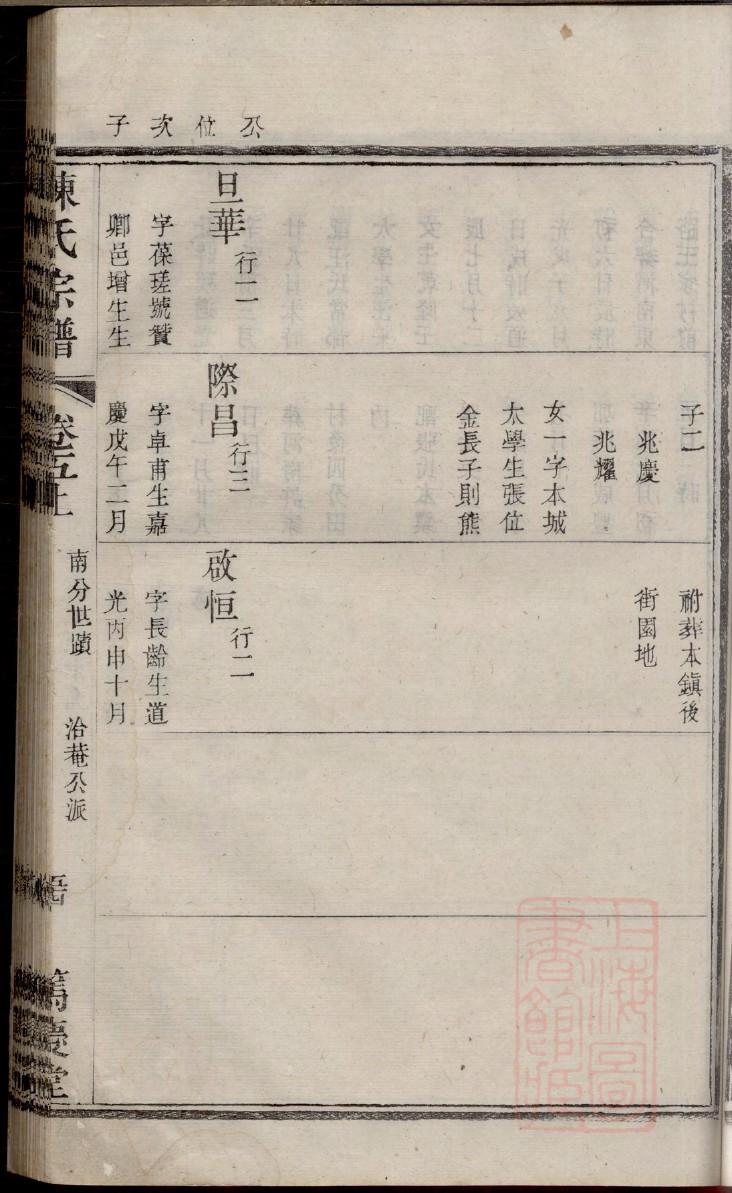 公位次子
旦華 行二
字葆瑳號贊
卿邑增生生
子二
兆慶
兆耀
女一字本城
太學生張位
金長子則熊
際昌 行三
字卓甫生嘉
慶戊午二月
祔葬本鎮後
街園地
啟恒 行二
字長齡生道
光丙申十月
陳氏宗譜
卷五上
南分世蹟
治菴公派
篤慶堂
上海圖
書館藏